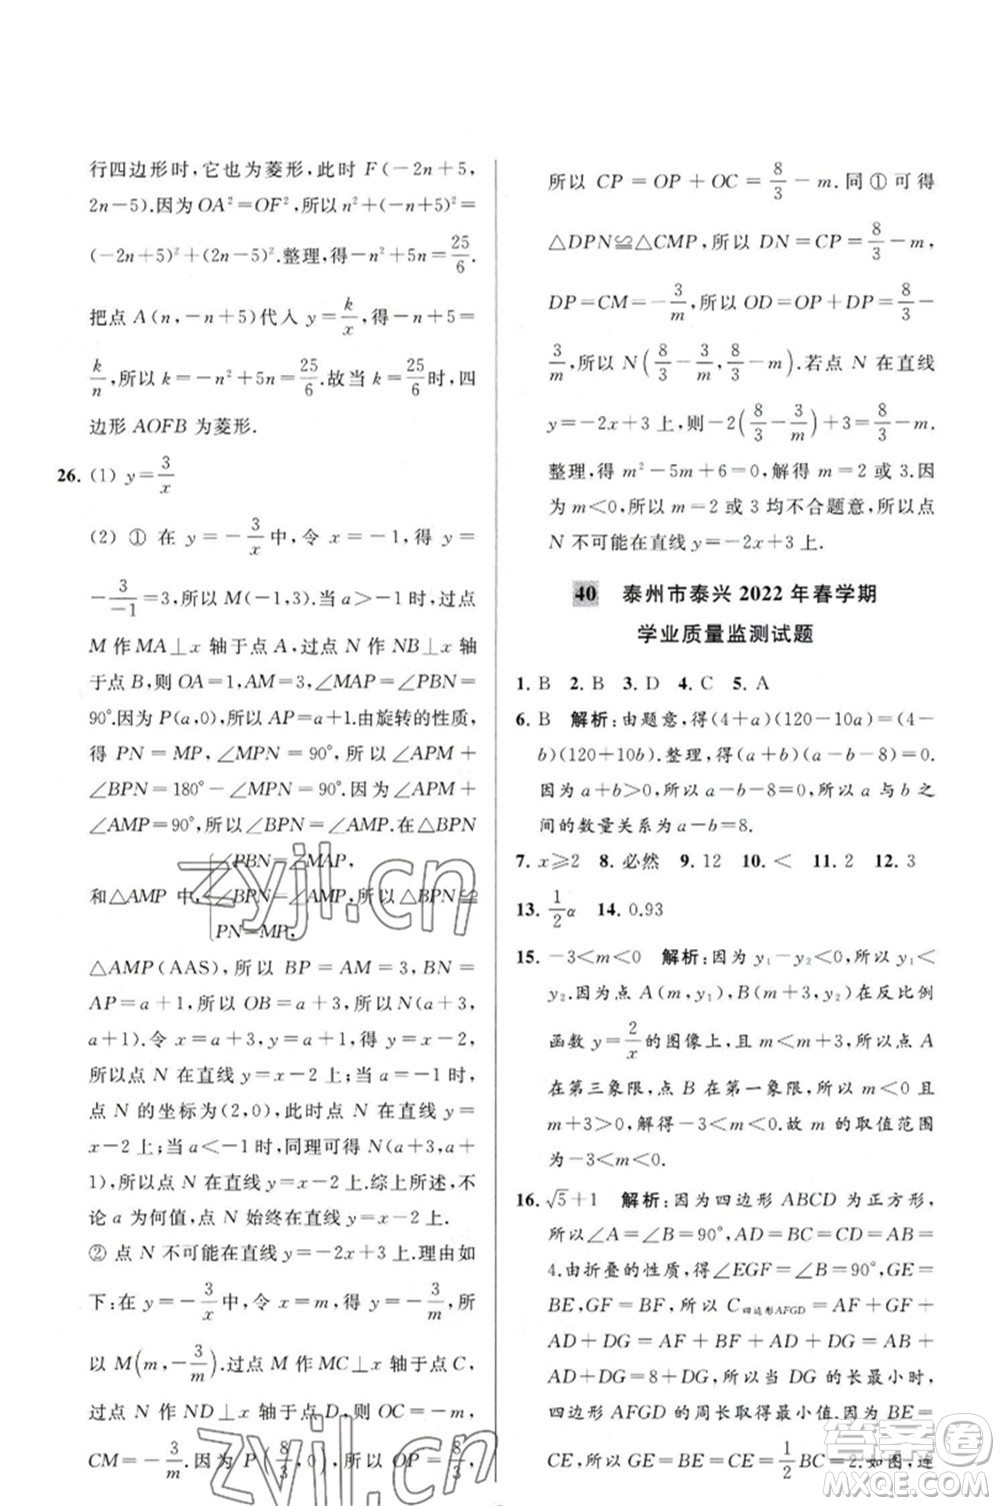 行四边形时,它也为菱形,此时 F(-2n+5,
2n-5).因为OA²=OF²,所以n²+(-n+5)²=
(-2n+5)²+(2n-5)².整理,得-n²+5n=25/6.
把点 A(n,-n+5)代入 y=k/x,得-n+5=
k/n,所以k=-n²+5n=25/6.故当k=25/6时,四
边形 AOFB 为菱形.
26. (1) y=-3/x
(2) ① 在 y=-3/x中,令 x=-1,得 y=
-3/-1=3,所以M(-1,3).当a>-1时,过点
M 作MA⊥x 轴于点A,过点N 作NB⊥x 轴
于点B,则 OA=1,AM=3,∠MAP=∠PBN=
90°.因为P(a,0),所以AP=a+1.由旋转的性质,
得 PN = MP,∠MPN = 90°,所以∠APM +
∠BPN=180°-∠MPN=90°.因为∠APM+
∠AMP=90°,所以∠BPN=∠AMP.在△BPN
∠PBN=∠MAP,
和△AMP 中,∠BPN=∠AMP,所以△BPN≌
PN=MP,
△AMP(AAS),所以 BP = AM = 3,BN =
AP=a+1,所以 OB=a+3,所以N(a+3,
a+1).令 x=a+3,y=a+1,得 y=x-2,
所以点 N 在直线 y=x-2上;当a=-1时,
点 N 的坐标为(2,0),此时点 N 在直线 y=
x-2上;当a<-1时,同理可得N(a+3,a+
1),所以点 N 在直线y=x-2上.综上所述,不
论a为何值,点 N 始终在直线y=x-2上.
② 点 N 不可能在直线y=-2x+3上.理由如
下:在y=-3/x中,令 x=m,得 y=-3/m,所
以 M(m,-3/m).过点 M 作 MC⊥x 轴于点C,
过点 N 作 ND⊥x 轴于点D,则 OC=-m,
CM=-3/m.因为 P(8/3,0),所以 OP=8/3,
所以 CP=OP+OC=8/3-m.同①可得
△DPN≌△CMP,所以 DN=CP=8/3-m,
DP=CM=-3/m,所以 OD=OP+DP=8/3-
3/m,所以 N(8/3-3/m,8/3-m).若点 N 在直线
y=-2x+3上,则-2(8/3-3/m)+3=8/3-m.
整理,得 m²-5m+6=0,解得 m=2或3.因
为m<0,所以 m=2 或 3 均不合题意,所以点
N 不可能在直线y=-2x+3上.
40 泰州市泰兴 2022 年春学期
学业质量监测试题
1. B 2. B 3. D 4. C 5. A
6. B 解析:由题意,得(4+a)(120-10a)=(4-
b)(120+10b).整理,得(a+b)(a-b-8)=0.
因为a+b>0,所以a-b-8=0,所以a与b之
间的数量关系为a-b=8.
7. x≥2 8. 必然 9. 12 10. < 11. 2 12. 3
13. 1/2α 14. 0.93
15. -3<m<0 解析:因为y₁-y₂<0,所以y₁<
y₂.因为点 A(m,y₁),B(m+3,y₂)在反比例
函数 y=2/x的图像上,且 m<m+3,所以点A
在第三象限,点 B 在第一象限,所以 m<0 且
m+3>0,所以 m>-3.故 m 的取值范围
为-3<m<0.
16. √5+1 解析:因为四边形 ABCD 为正方形,
所以∠A=∠B=90°,AD=BC=CD=AB=
4.由折叠的性质,得∠EGF=∠B=90°,GE=
BE,GF=BF,所以 C四边形AFGD=AF+GF+
AD+DG=AF+BF+AD+DG=AB+
AD+DG=8+DG,所以当 DG 的长最小时,
四边形 AFGD 的周长取得最小值.因为 BE=
CE,所以GE=BE=CE=1/2BC=2.如图,连
zyjl.cn
zyjl.cn
答案圈
MXQE.COM